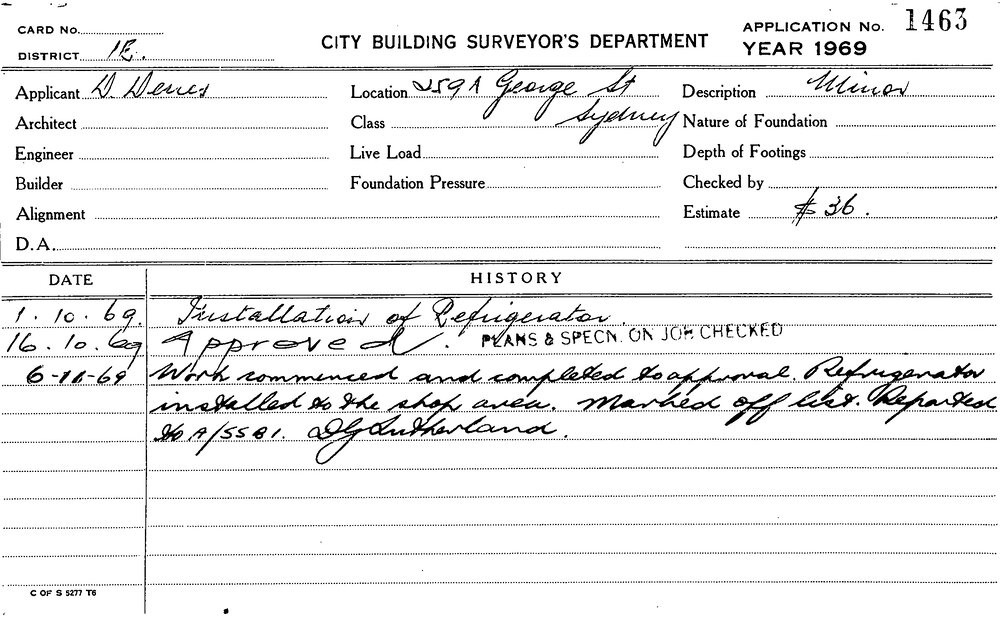 CARD No.
DISTRICT 1E.
CITY BUILDING SURVEYOR'S DEPARTMENT
APPLICATION No. 1463
YEAR 1969
Applicant D. Denes
Location 259A George St
Sydney
Description Minor
Architect
Class
Nature of Foundation
Engineer
Live Load
Depth of Footings
Builder
Foundation Pressure
Checked by
Alignment
Estimate $36.
D.A.
DATE HISTORY
1.10.69. Installation of Refrigerator.
16.10.69 Approved. PLANS & SPECN. ON JOB CHECKED
6-11-69 Work commenced and completed to approval. Refrigerator
installed to the shop area. Marked off list. Reported
to A/SSB1. DG Sutherland.
C OF S 5277 T6